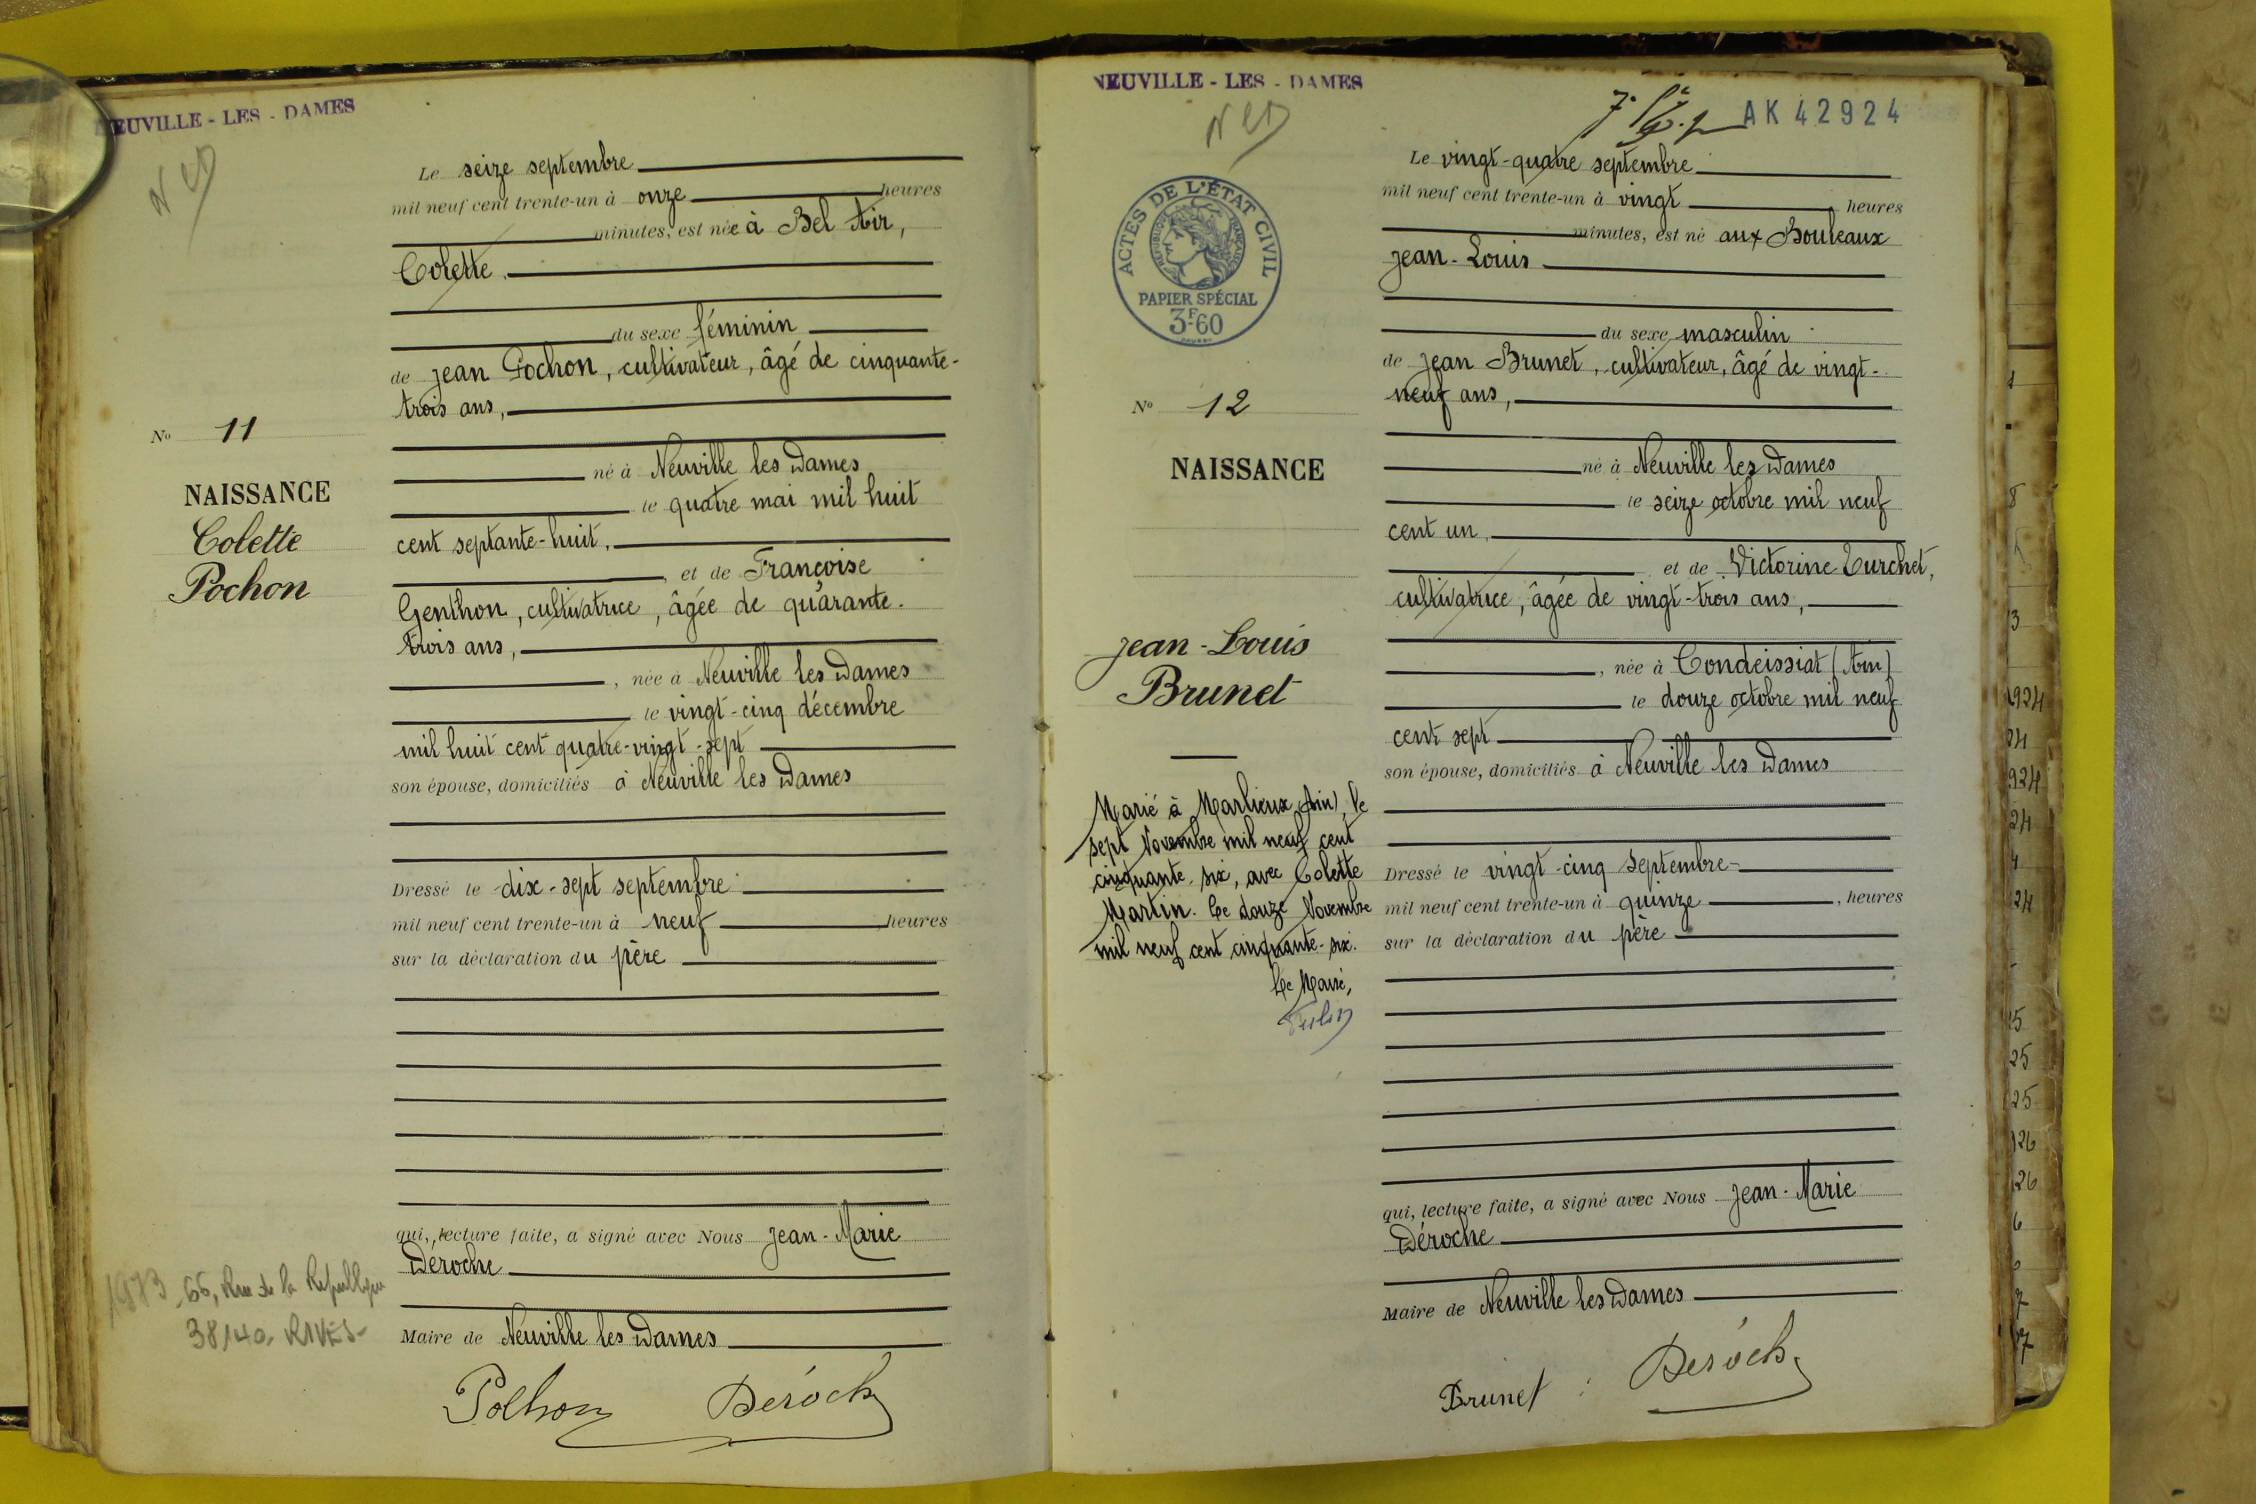 NEUVILLE - LES - DAMES
Le seize septembre
mil neuf cent trente-un à onze heures
minutes, est née à Bel Air,
Colette.
du sexe féminin
de Jean Pochon, cultivateur, âgé de cinquante-
trois ans,
né à Neuville les Dames
le quatre mai mil huit
cent septante-huit,
, et de Françoise
Genthon, cultivatrice, âgée de quarante-
trois ans,
, née à Neuville les Dames
le vingt-cinq décembre
mil huit cent quatre-vingt-sept
son épouse, domiciliés à Neuville les Dames
Dressé le dix-sept septembre
mil neuf cent trente-un à neuf heures
sur la déclaration du père
qui, lecture faite, a signé avec Nous Jean-Marie
Déroche
Maire de Neuville les Dames
Pochon Déroche
No 11
NAISSANCE
Colette
Pochon
1973 66, Rue de la République
38140 RIVES
NEUVILLE - LES - DAMES
AK 42924
ACTES DE L'ÉTAT CIVIL
RÉPUBLIQUE FRANÇAISE
PAPIER SPÉCIAL
3F60
Le vingt-quatre septembre
mil neuf cent trente-un à vingt heures
minutes, est né aux Bouleaux
Jean-Louis
du sexe masculin
de Jean Brunet, cultivateur, âgé de vingt-
neuf ans,
né à Neuville les Dames
le seize octobre mil neuf
cent un,
et de Victorine Turchet,
cultivatrice, âgée de vingt-trois ans,
, née à Condeissiat (Ain)
le douze octobre mil neuf
cent sept
son épouse, domiciliés à Neuville les Dames
Dressé le vingt-cinq septembre
mil neuf cent trente-un à quinze, heures
sur la déclaration du père
qui, lecture faite, a signé avec Nous Jean-Marie
Déroche
Maire de Neuville les Dames
Brunet Déroche
No 12
NAISSANCE
Jean-Louis
Brunet
Marié à Marlieux (Ain), le
sept Novembre mil neuf cent
cinquante-six, avec Colette
Martin. Le douze Novembre
mil neuf cent cinquante-six.
Le Maire,